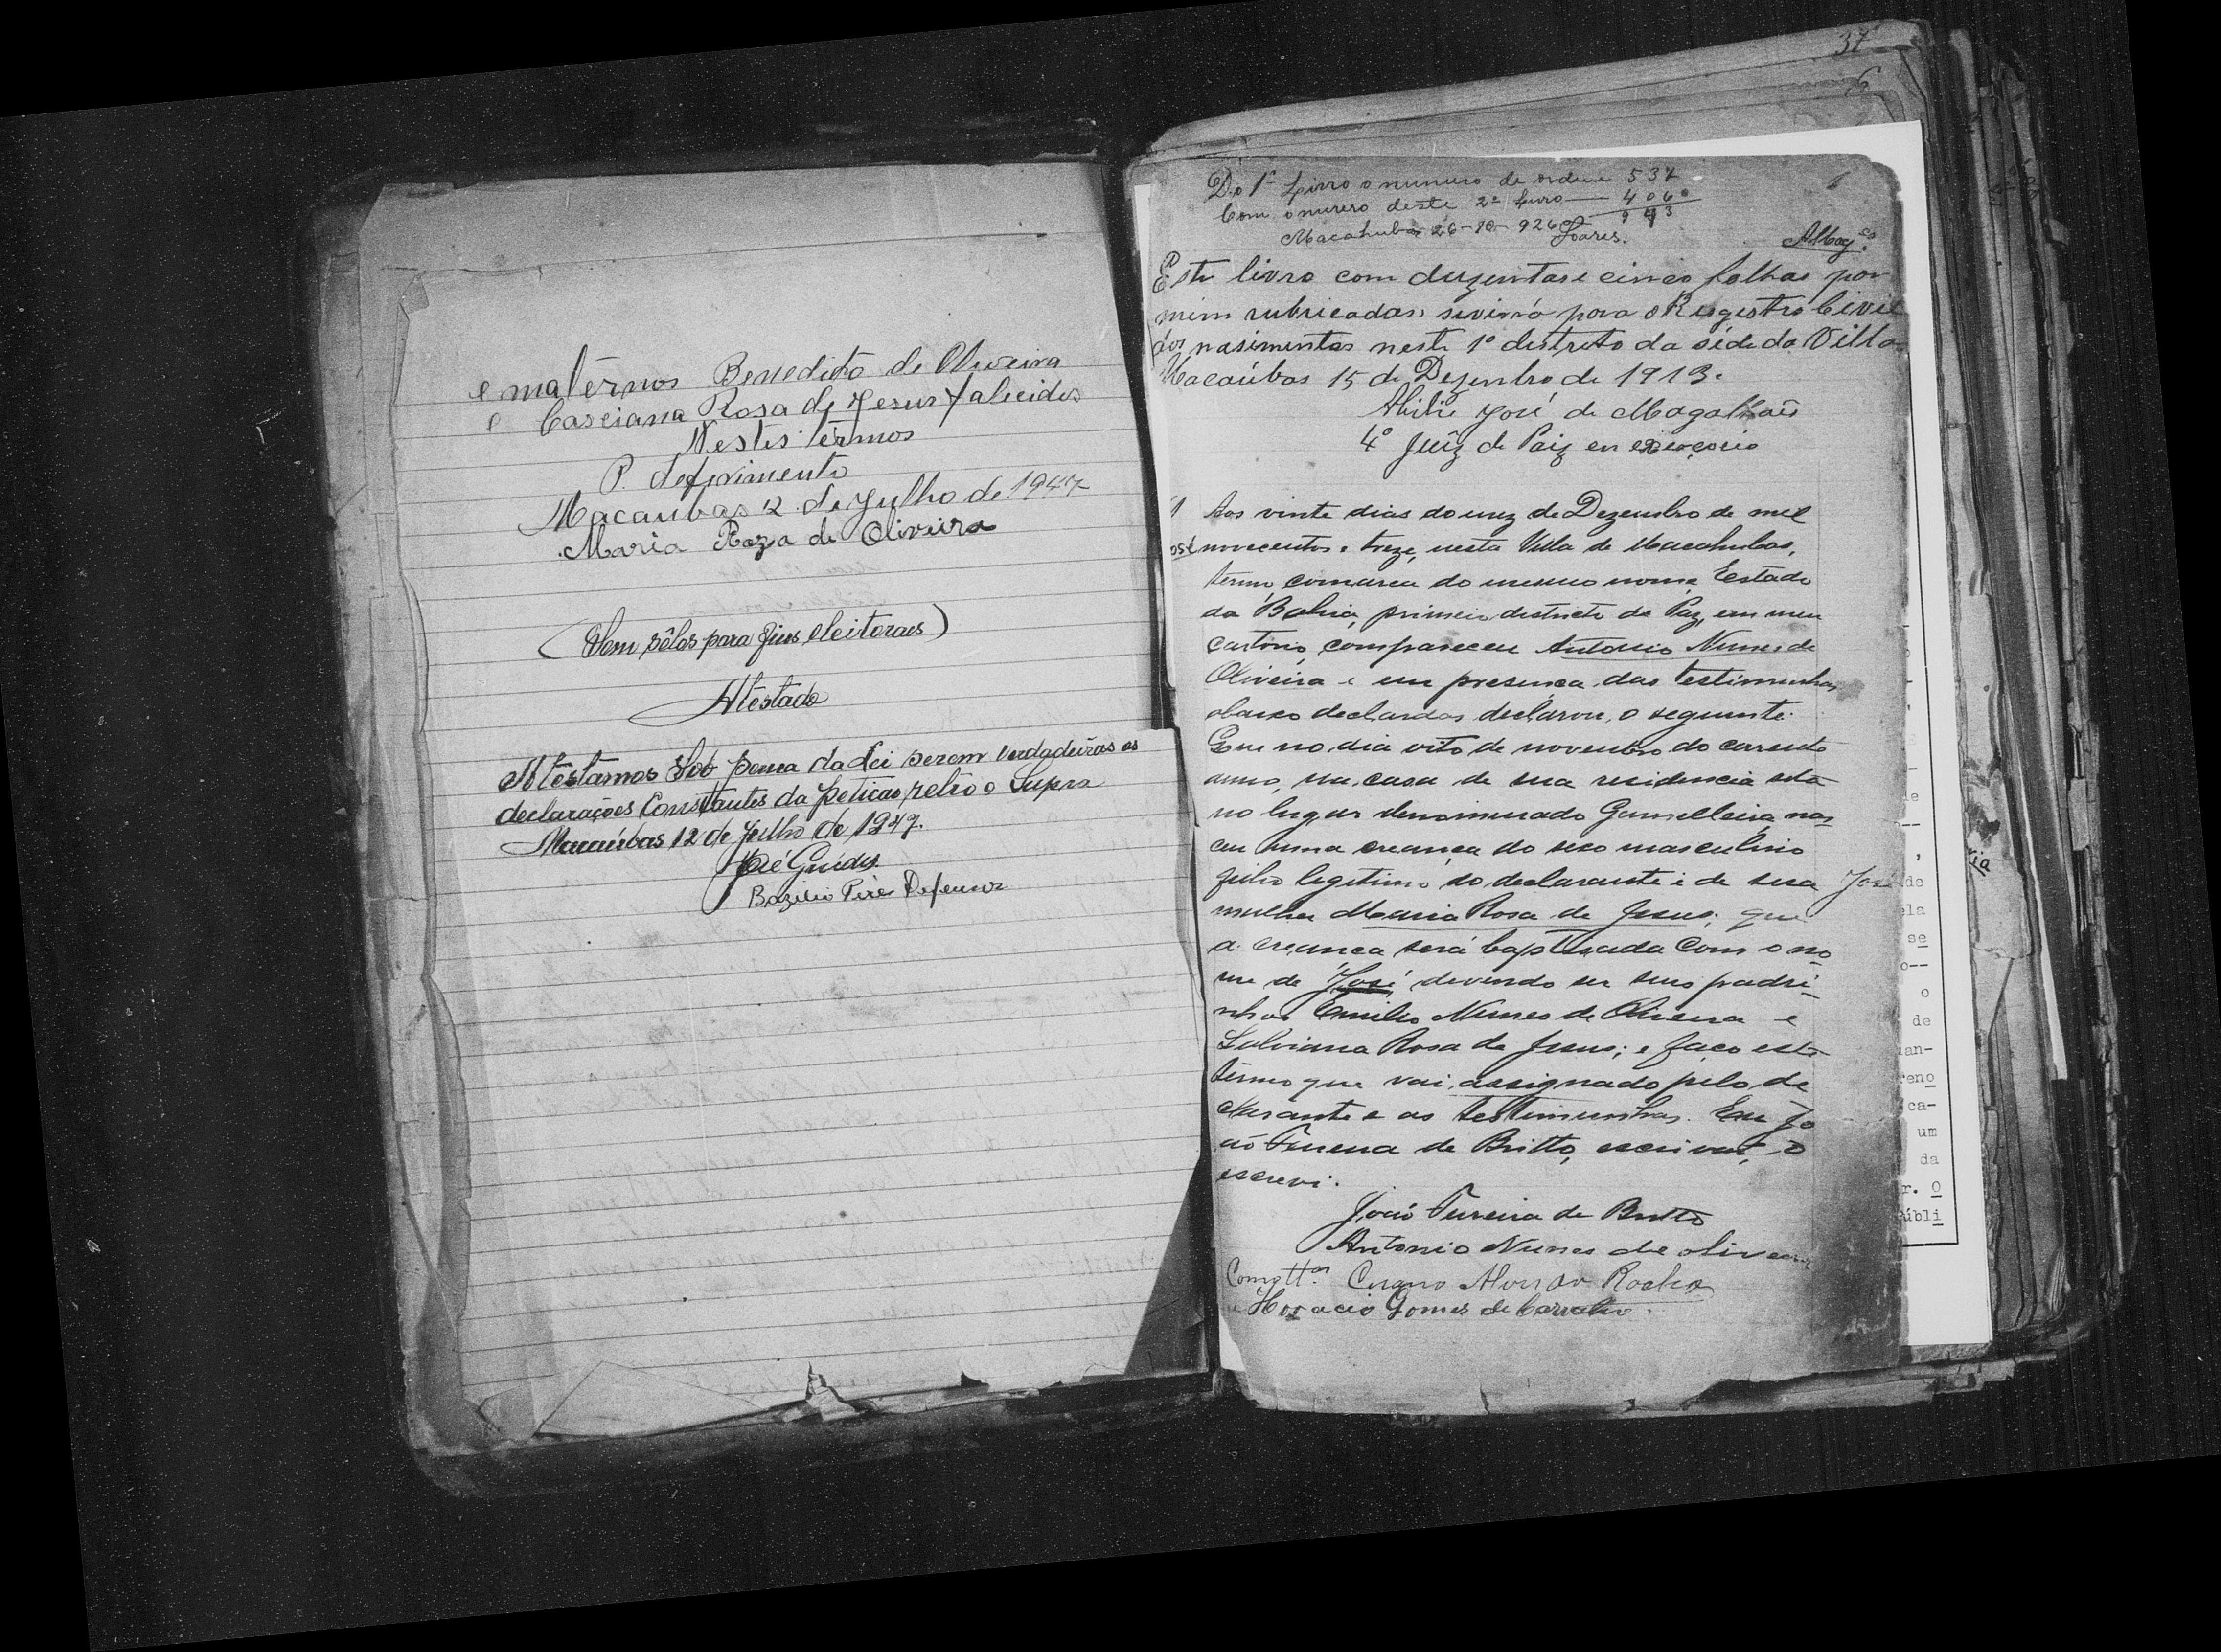 e matérnos Benedito de Oliveira
e Casciana Rosa de Jesus falecidos
Nestes térmos
P. deferimento
Macaúbas 12 de Julho de 1947
Maria Roza de Oliveira
(Sem sêlos para fins eleitoraes)
Atéstado
Atéstamos Sob pena da Lei serem verdadeiras as
declarações Constantes da petição retro e Supra
Macaúbas 12 de Julho de 1947.
José Guedes
Bazilio Pires Defensor
37
6
Do 1º Livro o numero de ordem 537
Com o numero deste 2º livro — 406
943
Macahubas 26-10-926
Soares.
Este livro com duzentas e cinco folhas por
mim rubricadas, sivirá para o Rigistro Civil
dos nasimentos neste 1º distreto da séde da Villa
Macaúbas 15 de Dezenbro de 1913.
Abilio José de Magalhães
4º Juiz de Paiz en exerçocio
1 Aos vinte dias do mez de Dezembro de mil
novecentos e treze, nesta Villa de Macahubas,
termo, comarca do mesmo nome, Estado
da Bahia, primeiro districto de Paz, em meu
cartorio, compareceu Antonio Nunes de
Oliveira e em presença das testimunhas
abaixo declaradas declarou, o seguinte:
Que no dia oito de novembro do corrente
anno, na casa de sua residencia sita
no lugar denominado Gamelleira, nas
ceu uma creança do sexo masculino
filho legitimo do declarante e de sua
José
mulher Maria Rosa de Jesus; que
a creança será baptisada com o no
me de José devendo ser seus padri-
nhos Emilio Nunes de Oliveira e
Salviana Rosa de Jesus; e faço este
termo que vai assignado pelo de
clarante e as testimunhas. Eu Jo
ão Ferreira de Britto, escrivão, o
escrevi.
João Ferreira de Britto
Antonio Nunes de oliveira
Como ttas Alves da Rocha
Horacio Gomes de Carvalho.
de
--
,
de
ela
se
o--
o
de
an-
reno
ca-
um
da
r. O
Públi